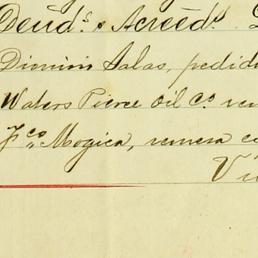 Deuds. o Acreeds.
Dionisio Salas, pedid
Waters Pierce Oil Co. rem
Fco. Mogica, remesa co
Vi